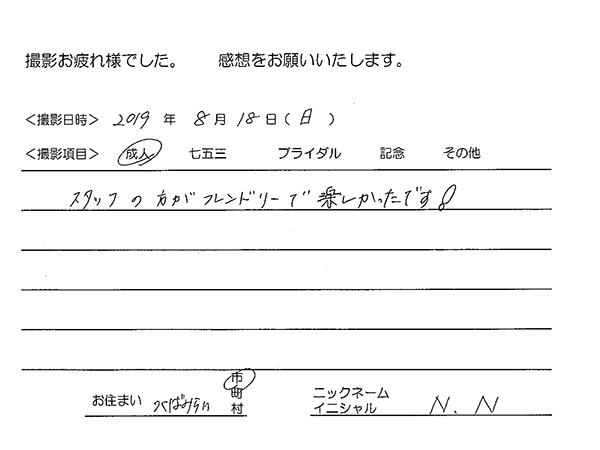 撮影お疲れ様でした。 感想をお願いいたします。
＜撮影日時＞ 2019 年 8 月 18 日 ( 日 )
＜撮影項目＞ 成人 七五三 ブライダル 記念 その他
スタッフの方がフレンドリーで楽しかったです!
お住まい つくばみらい 市 町 村
ニックネーム
イニシャル N、N